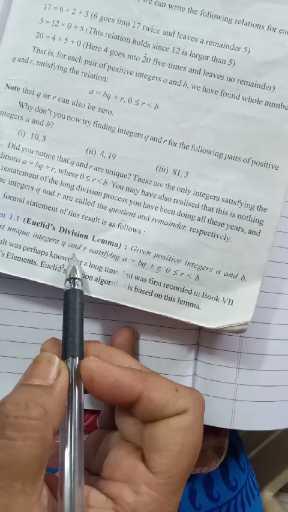 can write the following relations for each
17 = 6 × 2 + 5 (6 goes into 17 twice and leaves a remainder 5)
5 = 12 × 0 + 5 (This relation holds since 12 is larger than 5)
20 = 4 × 5 + 0 (Here 4 goes into 20 five times and leaves no remainder)
That is, for each pair of positive integers a and b, we have found whole numbers
q and r, satisfying the relation:
a = bq + r, 0 ≤ r < b
Note that q or r can also be zero.
Why don't you now try finding integers q and r for the following pairs of positive
integers a and b?
(i) 10, 3 (ii) 4, 19 (iii) 81, 3
Did you notice that q and r are unique? These are the only integers satisfying the
conditions a = bq + r, where 0 ≤ r < b. You may have also realised that this is nothing
restatement of the long division process you have been doing all these years, and
integers q and r are called the quotient and remainder, respectively.
formal statement of this result is as follows :
1.1 (Euclid's Division Lemma) : Given positive integers a and b,
unique integers q and r satisfying a = bq + r, 0 ≤ r < b.
ult was perhaps known for a long time, was first recorded in Book VII
's Elements. Euclid's algor is based on this lemma.